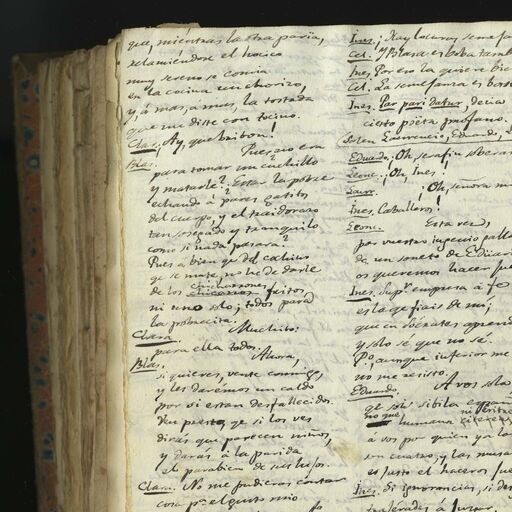 que, miéntras la otra paria,
relamiéndose el hocico
muy sereno se comia
en la cocina un chorizo,
y, á mas, á mas, la tostada
que me diste con tocino.
Clara. Ay, que bribon!
Blas. Pues, no era
para tomar un cuchillo
y matarle? Estar la pobre
echando á pares gatitos
del cuerpo, y el traidorazo
tan sosegado y tranquilo
como si nada pasara?
Pues á bien qe del cabrito
qe se mate, no he de darle
de los chicharrones fritos,
ni uno solo; todos para
la pobrecita.
Clara. Muchito:
para ella todos.
Blas. Ahora,
si quieres, vente conmigo,
y les darémos un caldo
por si estan desfallecidos.
Ven presto, qe si los ves
dirás que parecen niños,
y darás á la parida
el parabien de sus hijos.
Clara. No me pudieras contar
cosa pa. el gusto mio
Ines. ¡Hay locura semeja
Cel. Y Blasa es boba tamb
Ines. Por eso la quiere bie
Cel. La semejanza es bast
Ines. Par pari datur, decia
cierto poeta profano.
Salen Laurencio, Eduardo, L
Eduardo. ¡Oh, serafin sobera
Leonc. ¡Oh, Ines!
Laur. ¡Oh, señora m
Ines. Caballeros!
Leonc. Esta vez,
por vuestro ingenio gall
de un soneto de Eduar
os queremos hacer jue
Ines. Supr. empresa á fe
es la qe fiais de mí;
que en Socrates apren
y solo sé que no sé.
Po. aunque inferior me
no me resisto.
Eduardo. A vos sola
qe sois sibila españ
no que humana
á vos por quien ya la
son cuatro, y las musas
es justo el haceros jue
Ines. Si ignorancias, si de